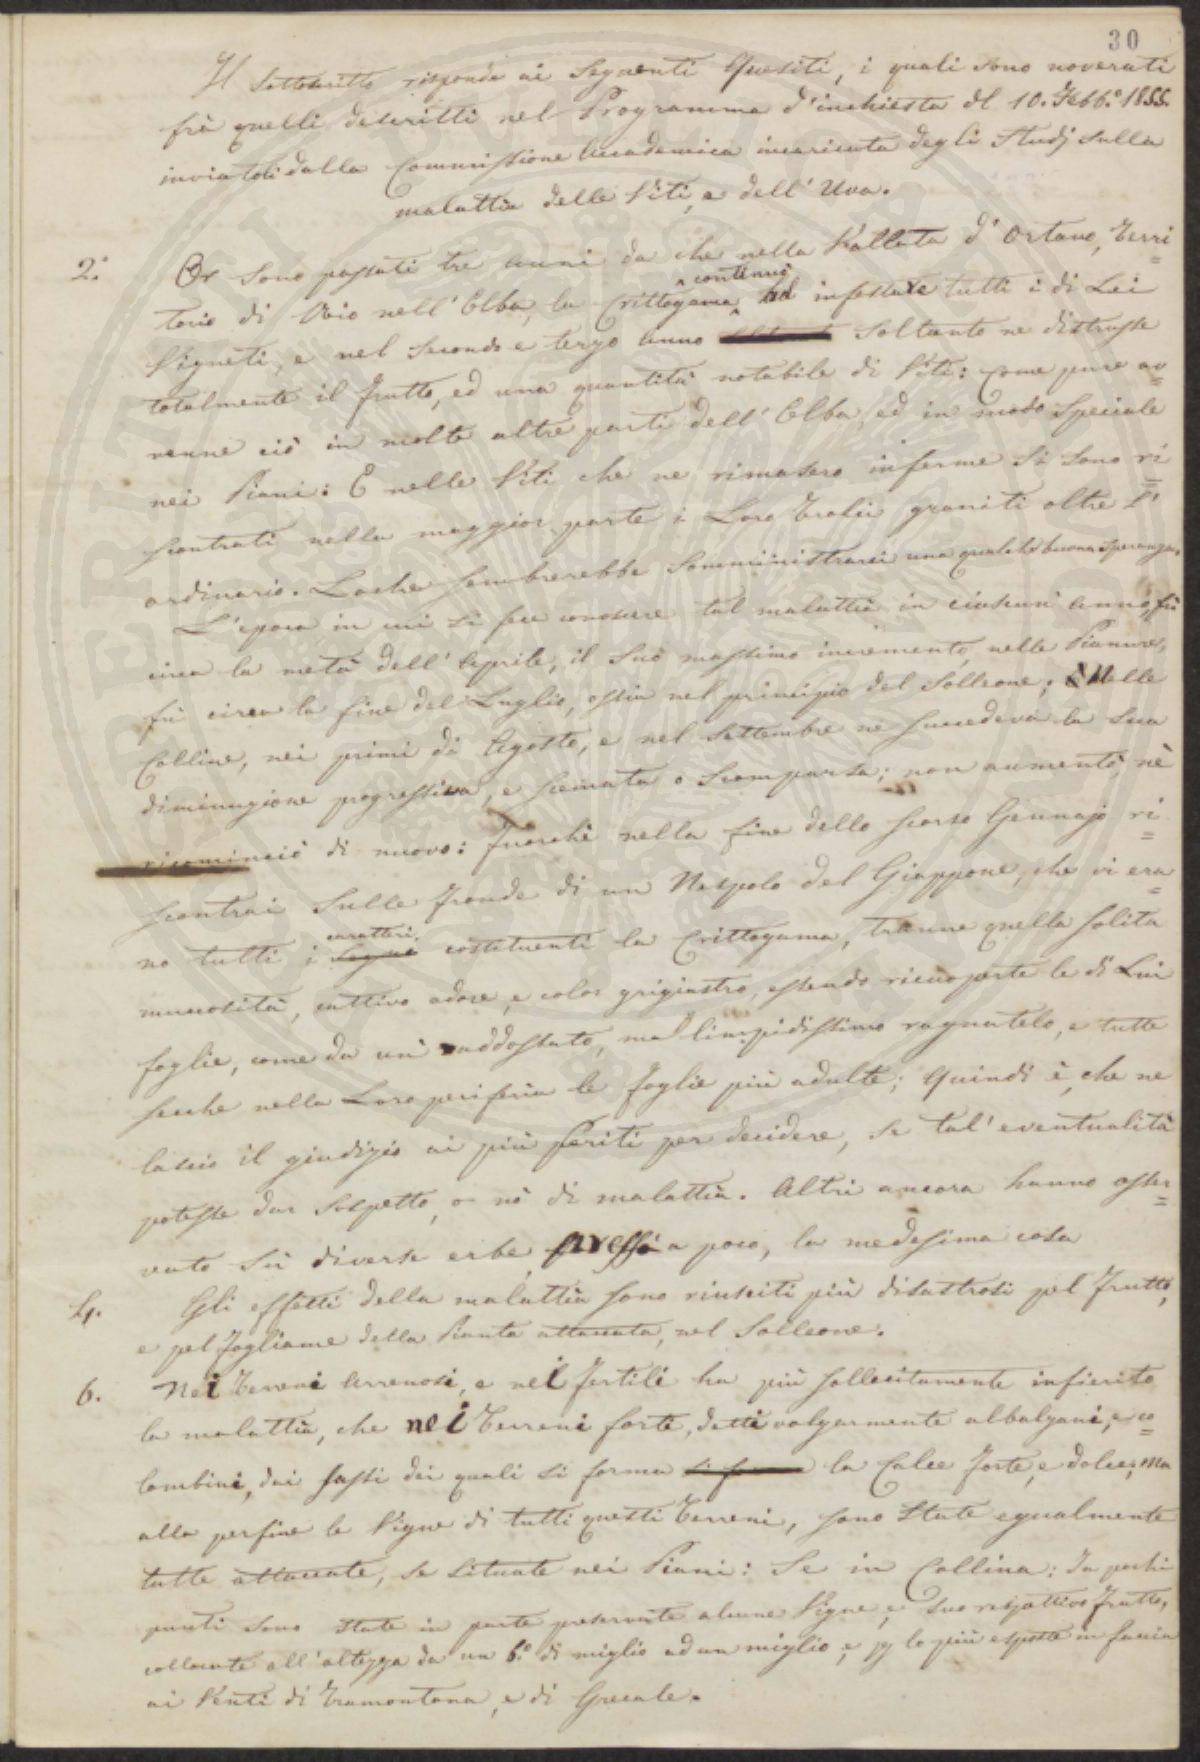 30
Il Sottoscritto risponde ai Seguenti Quesiti, i quali sono noverati
frà quelli descritti nel Programma d'inchiesta del 10. Febb.o 1855.
inviatoli dalla Commissione Accademica incaricata degli Studj sulla
malattia delle Viti, e dell'Uva.
2.° Or sono passati tre anni da che nella Vallata d'Ortano, Terri=
torio di Rio nell'Elba, la Crittogama continuò ad infestare tutti i di Lei
Vigneti, e nel secondo e terzo anno soltanto ne distrusse
totalmente il frutto, ed una quantità notabile di Viti: Come pure av=
venne ciò in molte altre parti dell'Elba, ed in modo speciale
nei Piani: E nelle Viti che ne rimasero inferme si sono ri=
scontrati nella maggior parte i Loro Tralci graniti oltre l'
ordinario. Loche sembrerebbe somministrarci una qualche buona speranza.
L'epoca in cui si fece conoscere tal malattia in ciascun anno, fù
circa la metà dell'Aprile, il Suo massimo incremento, nelle Pianure,
fù circa la fine del Luglio, ossia nel principio del Solleone; Nelle
Colline, nei primi di Agosto, e nel Settembre ne succedeva la sua
diminuzione progressiva, e scemata o scomparsa; non aumentò, nè
ricominciò di nuovo: Fuorchè nella fine dello scorso Gennajo ri=
scontrai sulle fronde di un Nespolo del Giappone, che vi era=
no tutti i caratteri Segni costituenti la Crittogama, tranne quella solita
mucosità, cattivo odore, e color grigiastro, essendo ricuoperte le di Lui
foglie, come da un addossato, ma limpidissimo ragnatelo, e tutte
secche nella Loro periferia le foglie più adulte; Quindi è, che ne
lascio il giudizio ai più Periti per decidere, se tal'eventualità
potesse dar sospetto, o nò di malattia. Altri ancora hanno osser=
vato sù diverse erbe, presso a poco, la medesima cosa
4. Gli effetti della malattia sono riusciti più disastrosi pel frutto,
e pel fogliame della Pianta attaccata, nel Solleone.
6. Nei Terreni Arenosi, e nei fertili ha più sollecitamente infierito
la malattia, che nei Terreni forte, detti volgarmente albalzani, e co=
lombini, dai sassi dei quali si forma la Calce forte, e dolce; ma
alla perfine le Vigne di tutti questi Terreni, sono State egualmente
tutte attaccate, se situate nei Piani: Se in Collina: In pochi
punti sono state in parte preservate alcune Vigne, e suo respettivo frutto,
collocate all'altezza da un 6.° di miglio ad un miglio, e p lo più esposte in faccia
ai Venti di Tramontana, e di Grecale.